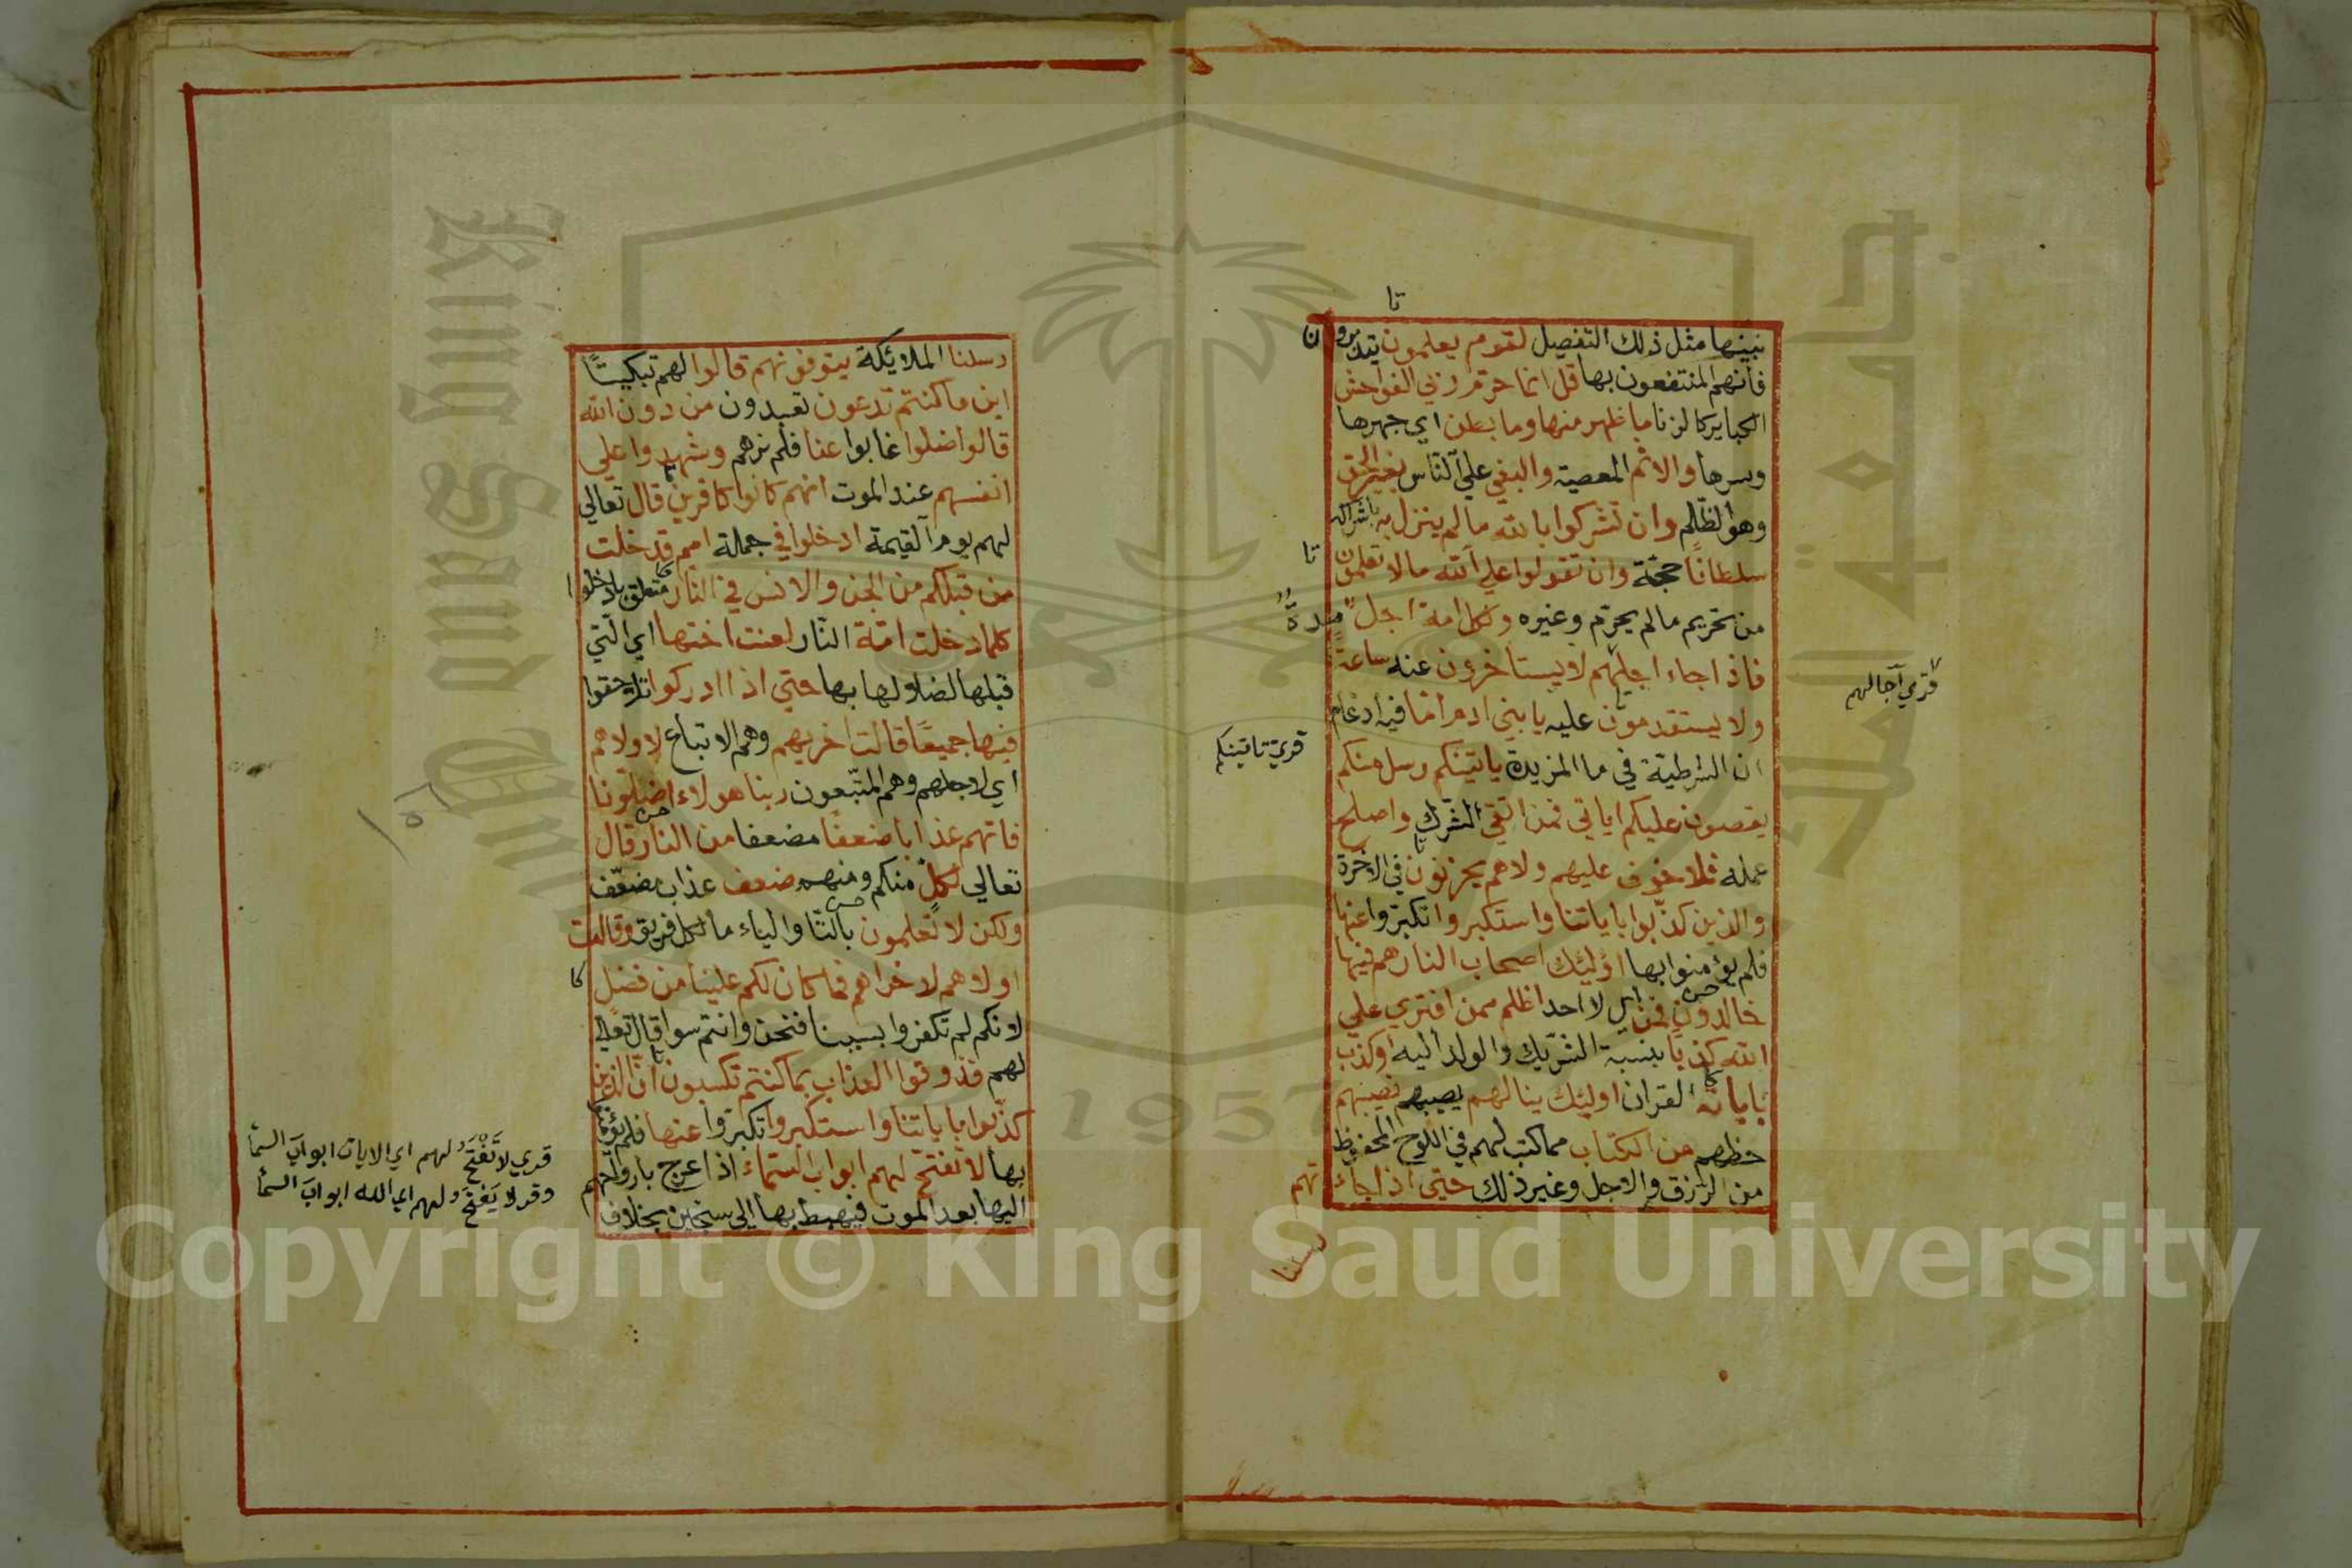 تا
نبينها مثل ذلك التفصيل لقوم يعلمون يتدبرون
فانهم المنتفعون بها قل انما حرم ربي الفواحش
الكباير كالزنا ما ظهر منها وما بطن اي جهرها
وسرها والاثم المعصية والبغي علي الناس بغير الحق
وهو الظلم وان تشركوا بالله ما لم ينزل به باشراكه
سلطانا حجة وان تقولوا علي الله مالا تعلمون
تا
من تحريم مالم يحرم وغيره ولكل امة اجل مدة
فاذا جاء اجلهم لا يستاخرون عنه ساعة
قري آجالهم
ولا يستقدمون عليه يا بني ادم اما فيه ادغام
ان الشرطية في ما المزيدة ياتينكم رسل منكم
قري تاتينكم
يقصون عليكم اياتي فمن اتقي الشرك واصلح
عمله فلا خوف عليهم ولا هم يحزنون في الاخرة
والذين كذبوا باياتنا واستكبروا تكبروا عنها
فلم يؤمنوا بها اوليك اصحاب النار هم فيها
خالدون فمن اي لا احد اظلم ممن افتري علي
الله كذبا بنسبة الشريك والولد اليه او كذب
باياته القران اوليك ينالهم يصيبهم نصيبهم
حظهم من الكتاب مما كتب لهم في اللوح المحفوظ
من الرزق والاجل وغير ذلك حتي اذا جاءتهم
رسلنا
رسلنا الملايكة يتوفونهم قالوا لهم تبكيتا
اين ما كنتم تدعون تعبدون من دون الله
قالوا ضلوا غابوا عنا فلم نرهم وشهدوا علي
انفسهم عند الموت انهم كانوا كافرين قال تعالي
لهم يوم القيمة ادخلوا في جملة امم قد خلت
من قبلكم من الجن والانس في النار متعلق بادخلوا
كلما دخلت امة النار لعنت اختها اي التي
قبلها لضلالها بها حتي اذا ادركوا تلاحقوا
فيها جميعا قالت اخريهم وهم الاتباع لاولاهم
اي لاجلهم وهم المتبعون ربنا هولاء اضلونا
فاتهم عذابا ضعفا مضعفا من النار قال
تعالي لكل منكم ومنهم ضعف عذاب مضعف
ولكن لا تعلمون بالتا والياء ما لكل فريق وقالت
اولاهم لاخراهم فما كان لكم علينا من فضل
لانكم لم تكفروا بسببنا فنحن وانتم سوا قال تعالي
لهم فذوقوا العذاب بما كنتم تكسبون ان الذين
كذبوا باياتنا واستكبروا تكبروا عنها فلم يؤمنوا
بها لا تفتح لهم ابواب السماء اذا عرج بارواحهم
اليها بعد الموت فيهبط بها الي سجين بخلاف
١٥٦
قري لا تَفْتَح لهم اي الايات ابواب السما
وقر لا يَفتح لهم اي الله ابواب السما
King Saud University
جامعة الملك
1957
Copyright © King Saud University